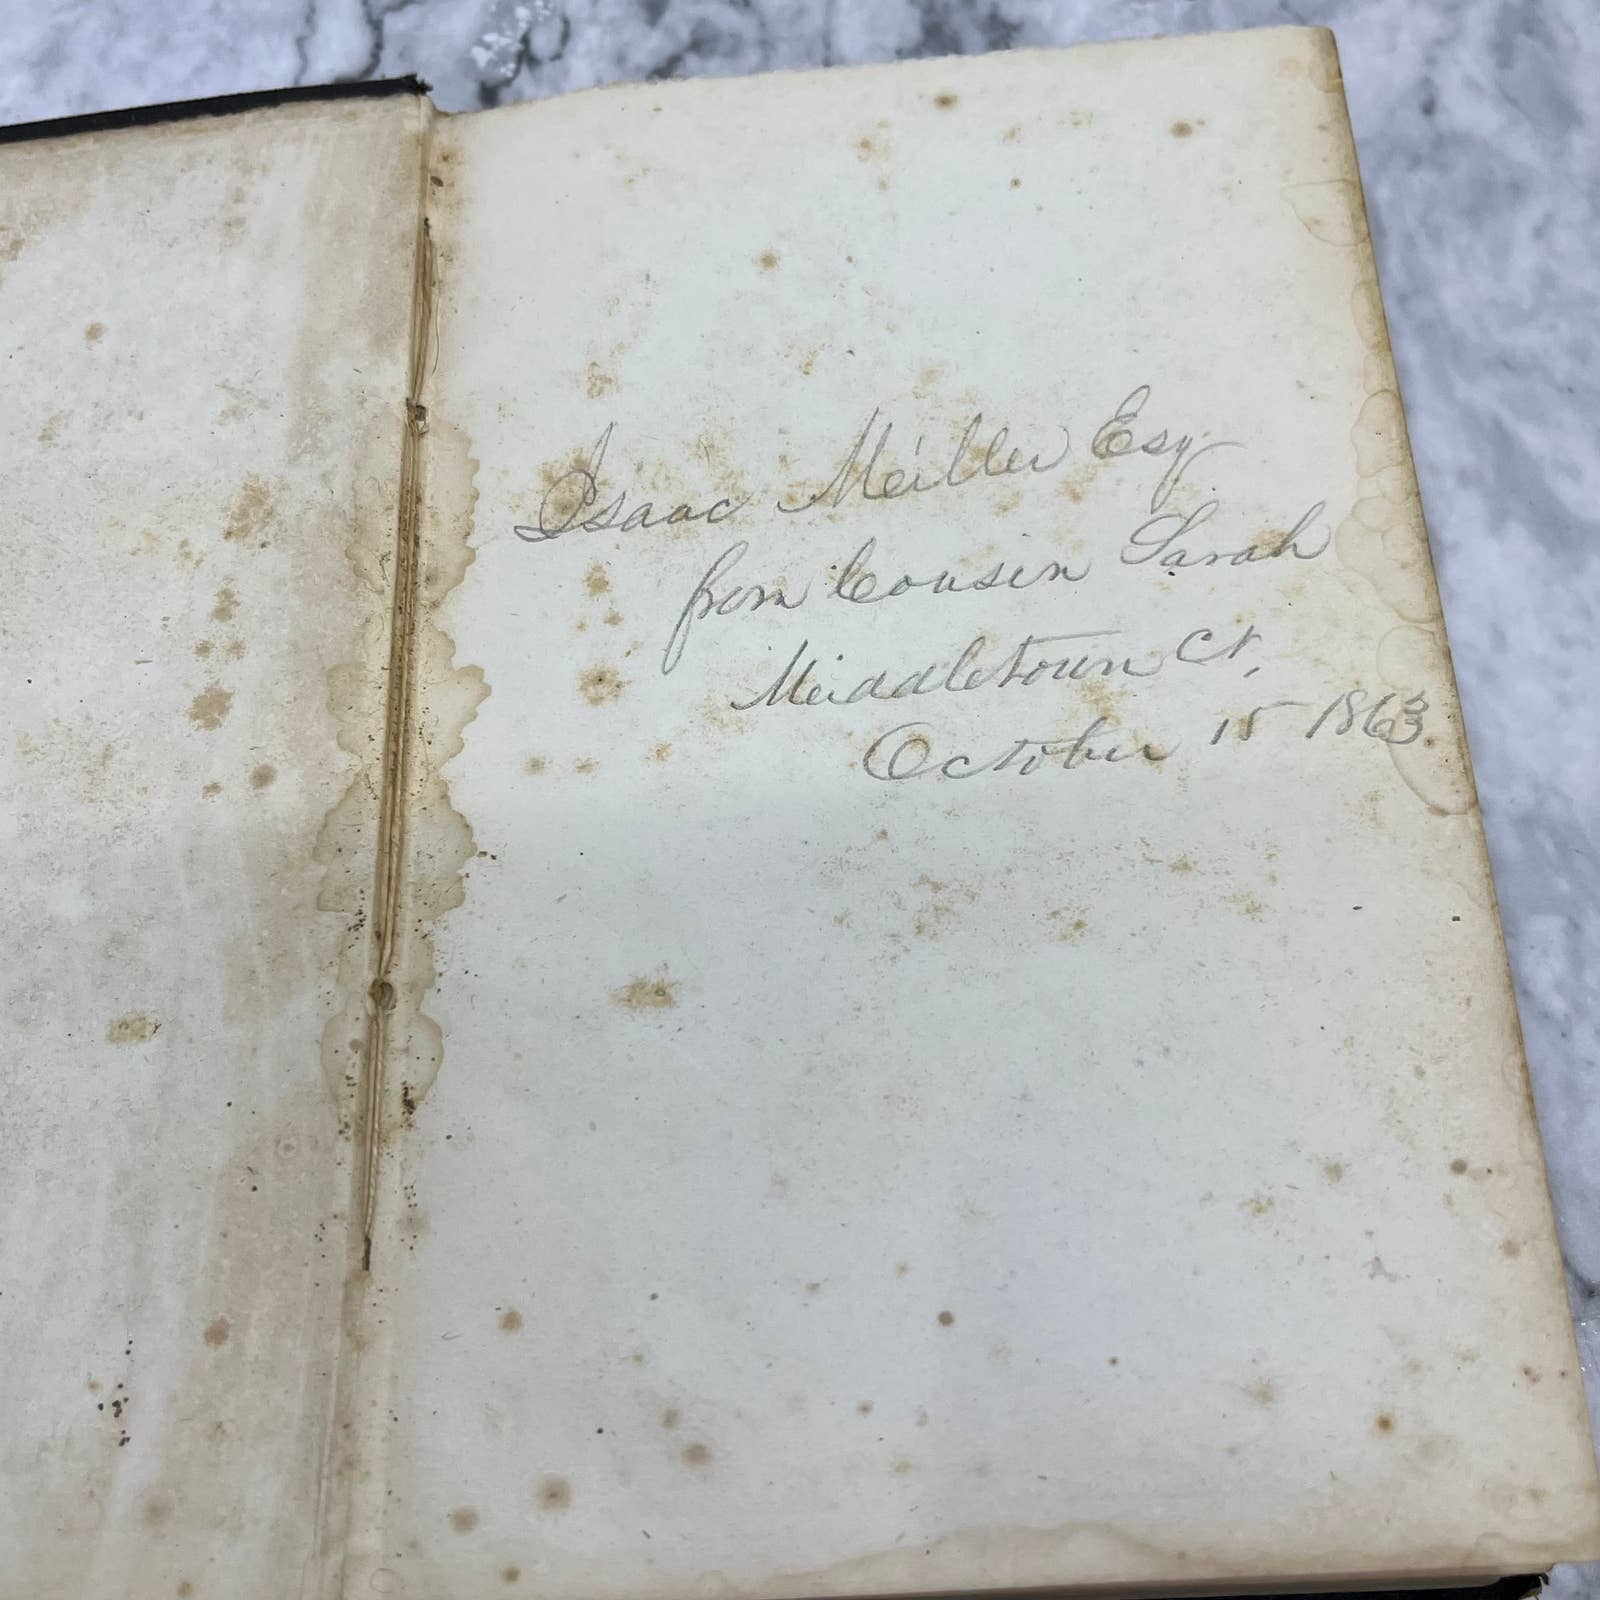 Isaac Miller Esq
from Cousin Sarah
Middletown Ct,
October 15 1863